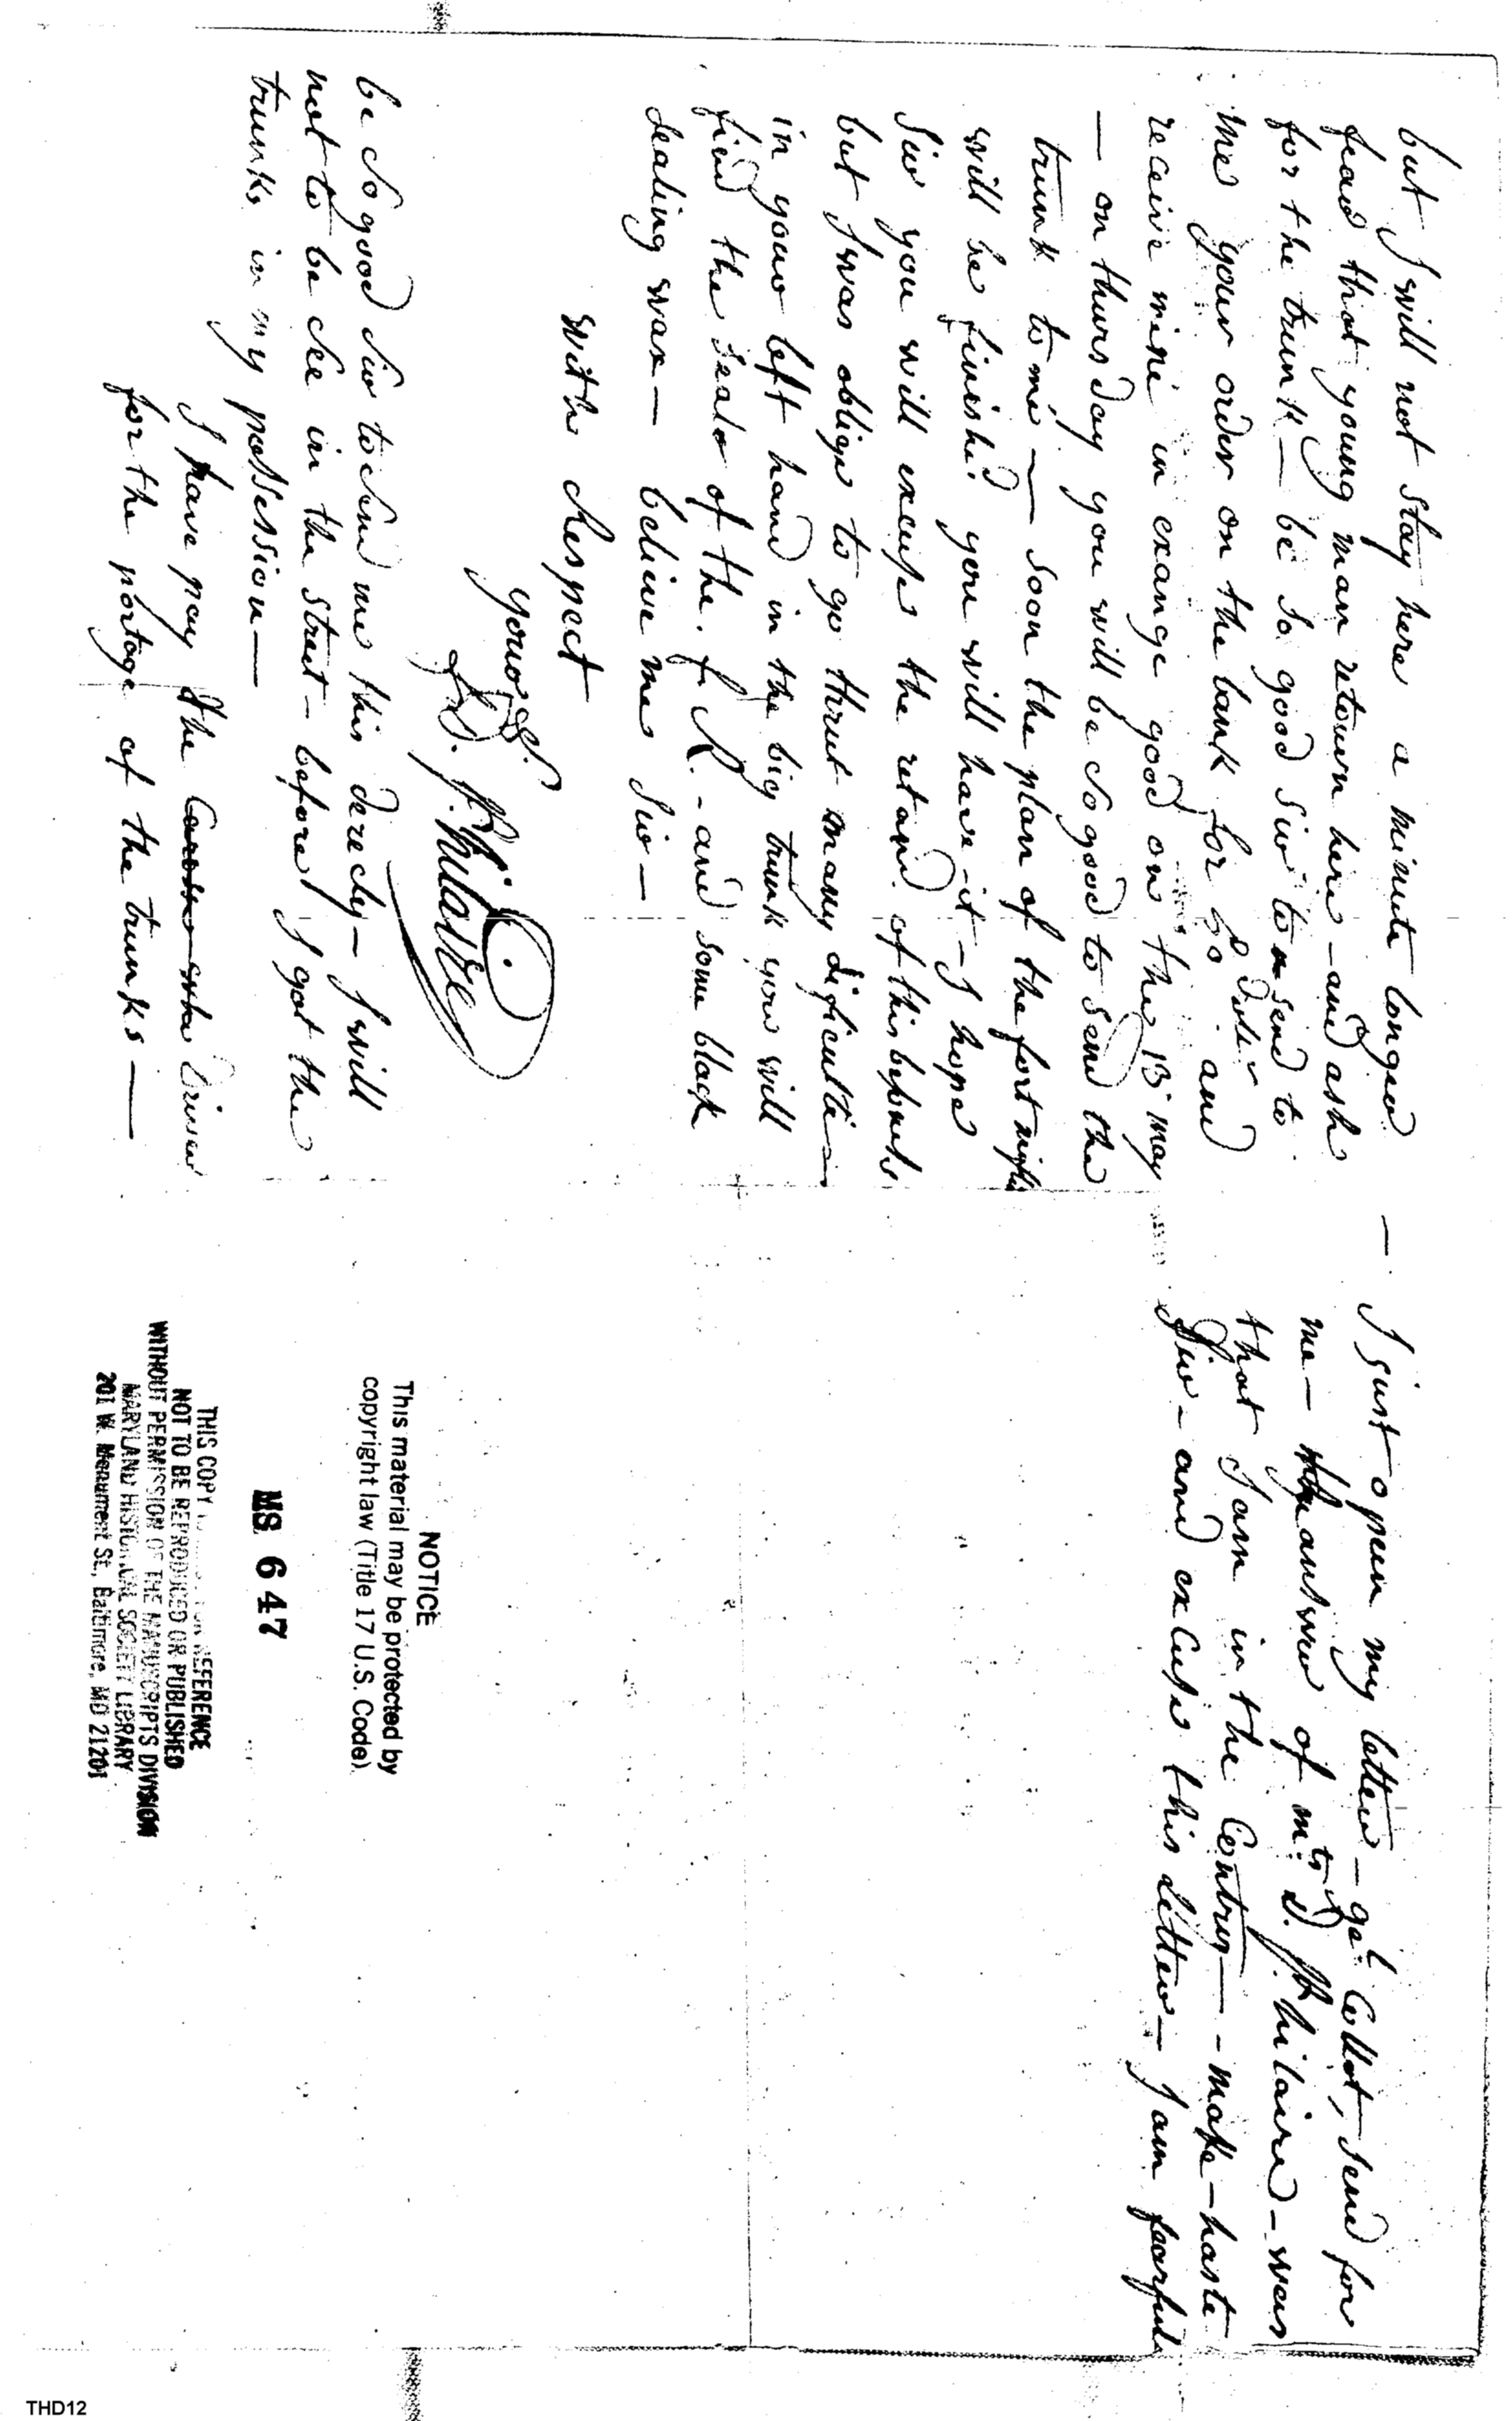 but I will not stay here a minute longer
fear that young man retourn here – and ask
for the trunk – be so good Sir to send to
me your order on the bank for 50 Dolls and
receive mine in exange good on the 13 may
— on thursday you will be so good to send the
trunk to me — soon the plan of the fort
will be finished you will have it – I hope
Sir you will excuse the retard of this
but I was oblige to go thrut many dificultie
in your left hand in the big trunk you will
find the seals of the f R. – and some black
sealing wax — believe me Sir —
with Respect
your S.
St. hilaire
be so good Sir to send me this derecly – I will
not to be see in the street – before I got the
trunks in my possession —
I have pay the Driver
for the portage of the trunks —
— I just open my letter – gal. Collot, send for
me – the answer of mrs D. St. hilaire – was
that I am in the Contry – – make – haste
Sir – and excuse this letter – I am fearful
NOTICE
This material may be protected by
copyright law (Title 17 U.S. Code)
MS 647
THIS COPY REFERENCE
NOT TO BE REPRODUCED OR PUBLISHED
WITHOUT PERMISSION OF THE MANUSCRIPTS DIVISION
MARYLAND HISTORICAL SOCIETY LIBRARY
201 W. Monument St., Baltimore, MD 21201
THD12